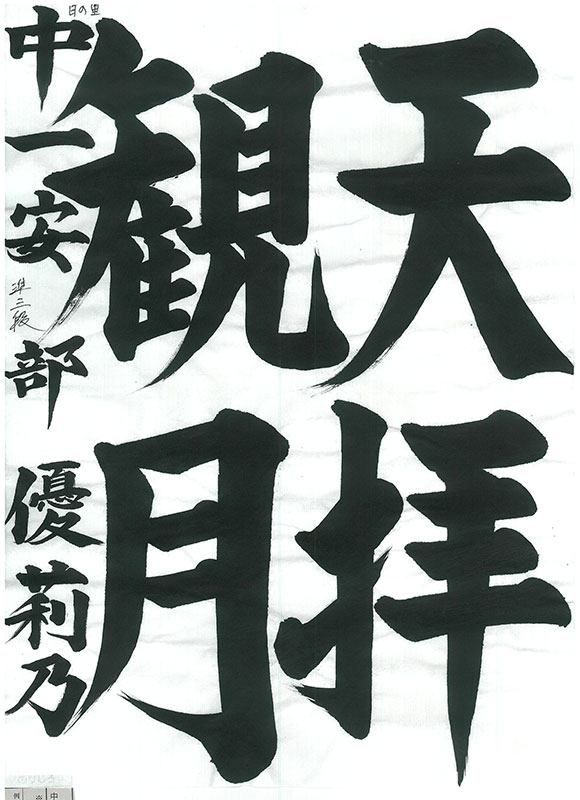 天拝
観月
中一安部優莉乃
準三級
日の里